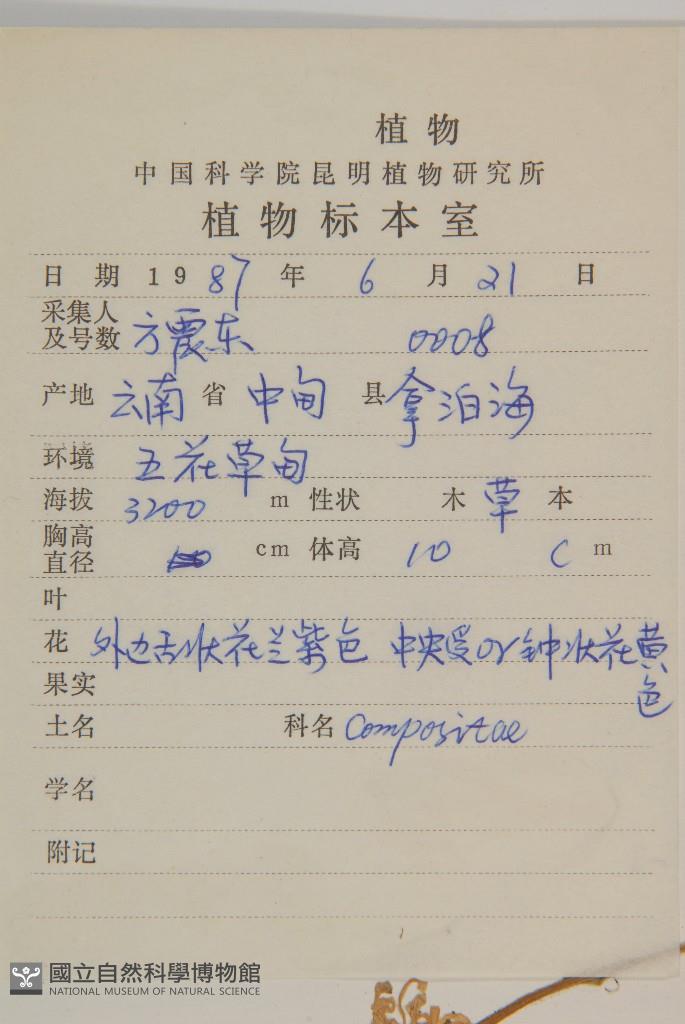 植物
中国科学院昆明植物研究所
植物标本室
日 期 1987 年 6 月 21 日
采集人
及号数 方震东 0008
产地 云南 省 中甸 县 拿泊海
环境 五花草甸
海拔 3200 m 性状 木 草 本
胸高
直径 cm 体高 10 c m
叶
花 外边舌状花兰紫色 中央 or 钟状花黄
色
果实
土名 科名 Compositae
学名
附记
國立自然科學博物館
NATIONAL MUSEUM OF NATURAL SCIENCE